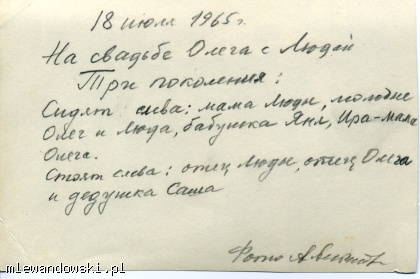 18 июля 1965г.
На свадьбе Олега с Людой
Три поколения:
Сидят слева: мама Люды, молодые
Олег и Люда, бабушка Яня, Ира-мама
Олега.
Стоят слева: отец Люды, отец Олега
и дедушка Саша
Фото А.
mlewandowski.pl